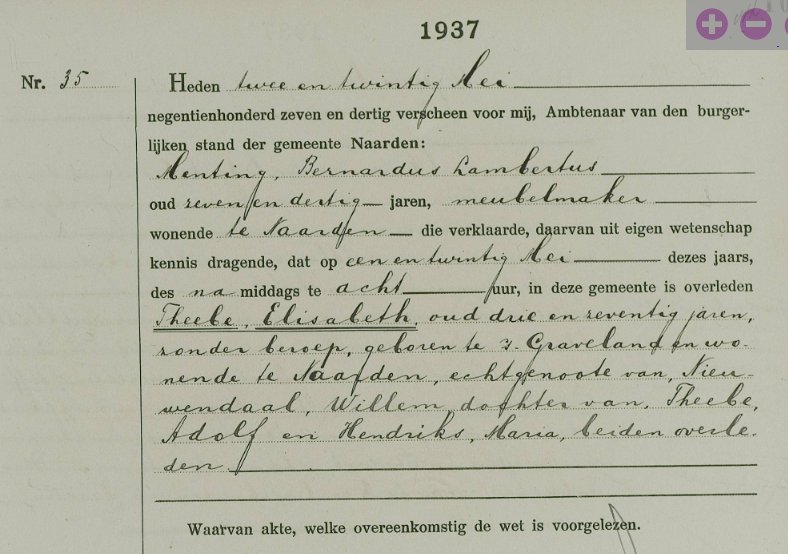 1937
Nr. 35
Heden twee en twintig Mei
negentienhonderd zeven en dertig verscheen voor mij, Ambtenaar van den burger-
lijken stand der gemeente Naarden:
Menting, Bernardus Lambertus
oud zeven en dertig jaren, meubelmaker
wonende te Naarden die verklaarde, daarvan uit eigen wetenschap
kennis dragende, dat op een en twintig Mei dezes jaars,
des na middags te acht uur, in deze gemeente is overleden
Theebe, Elisabeth, oud drie en zeventig jaren,
zonder beroep, geboren te 's Graveland en wo-
nende te Naarden, echtgenoote van, Nieu-
wendaal, Willem, dochter van, Theebe,
Adolf en Hendriks, Maria, beiden overle-
den.
Waarvan akte, welke overeenkomstig de wet is voorgelezen.